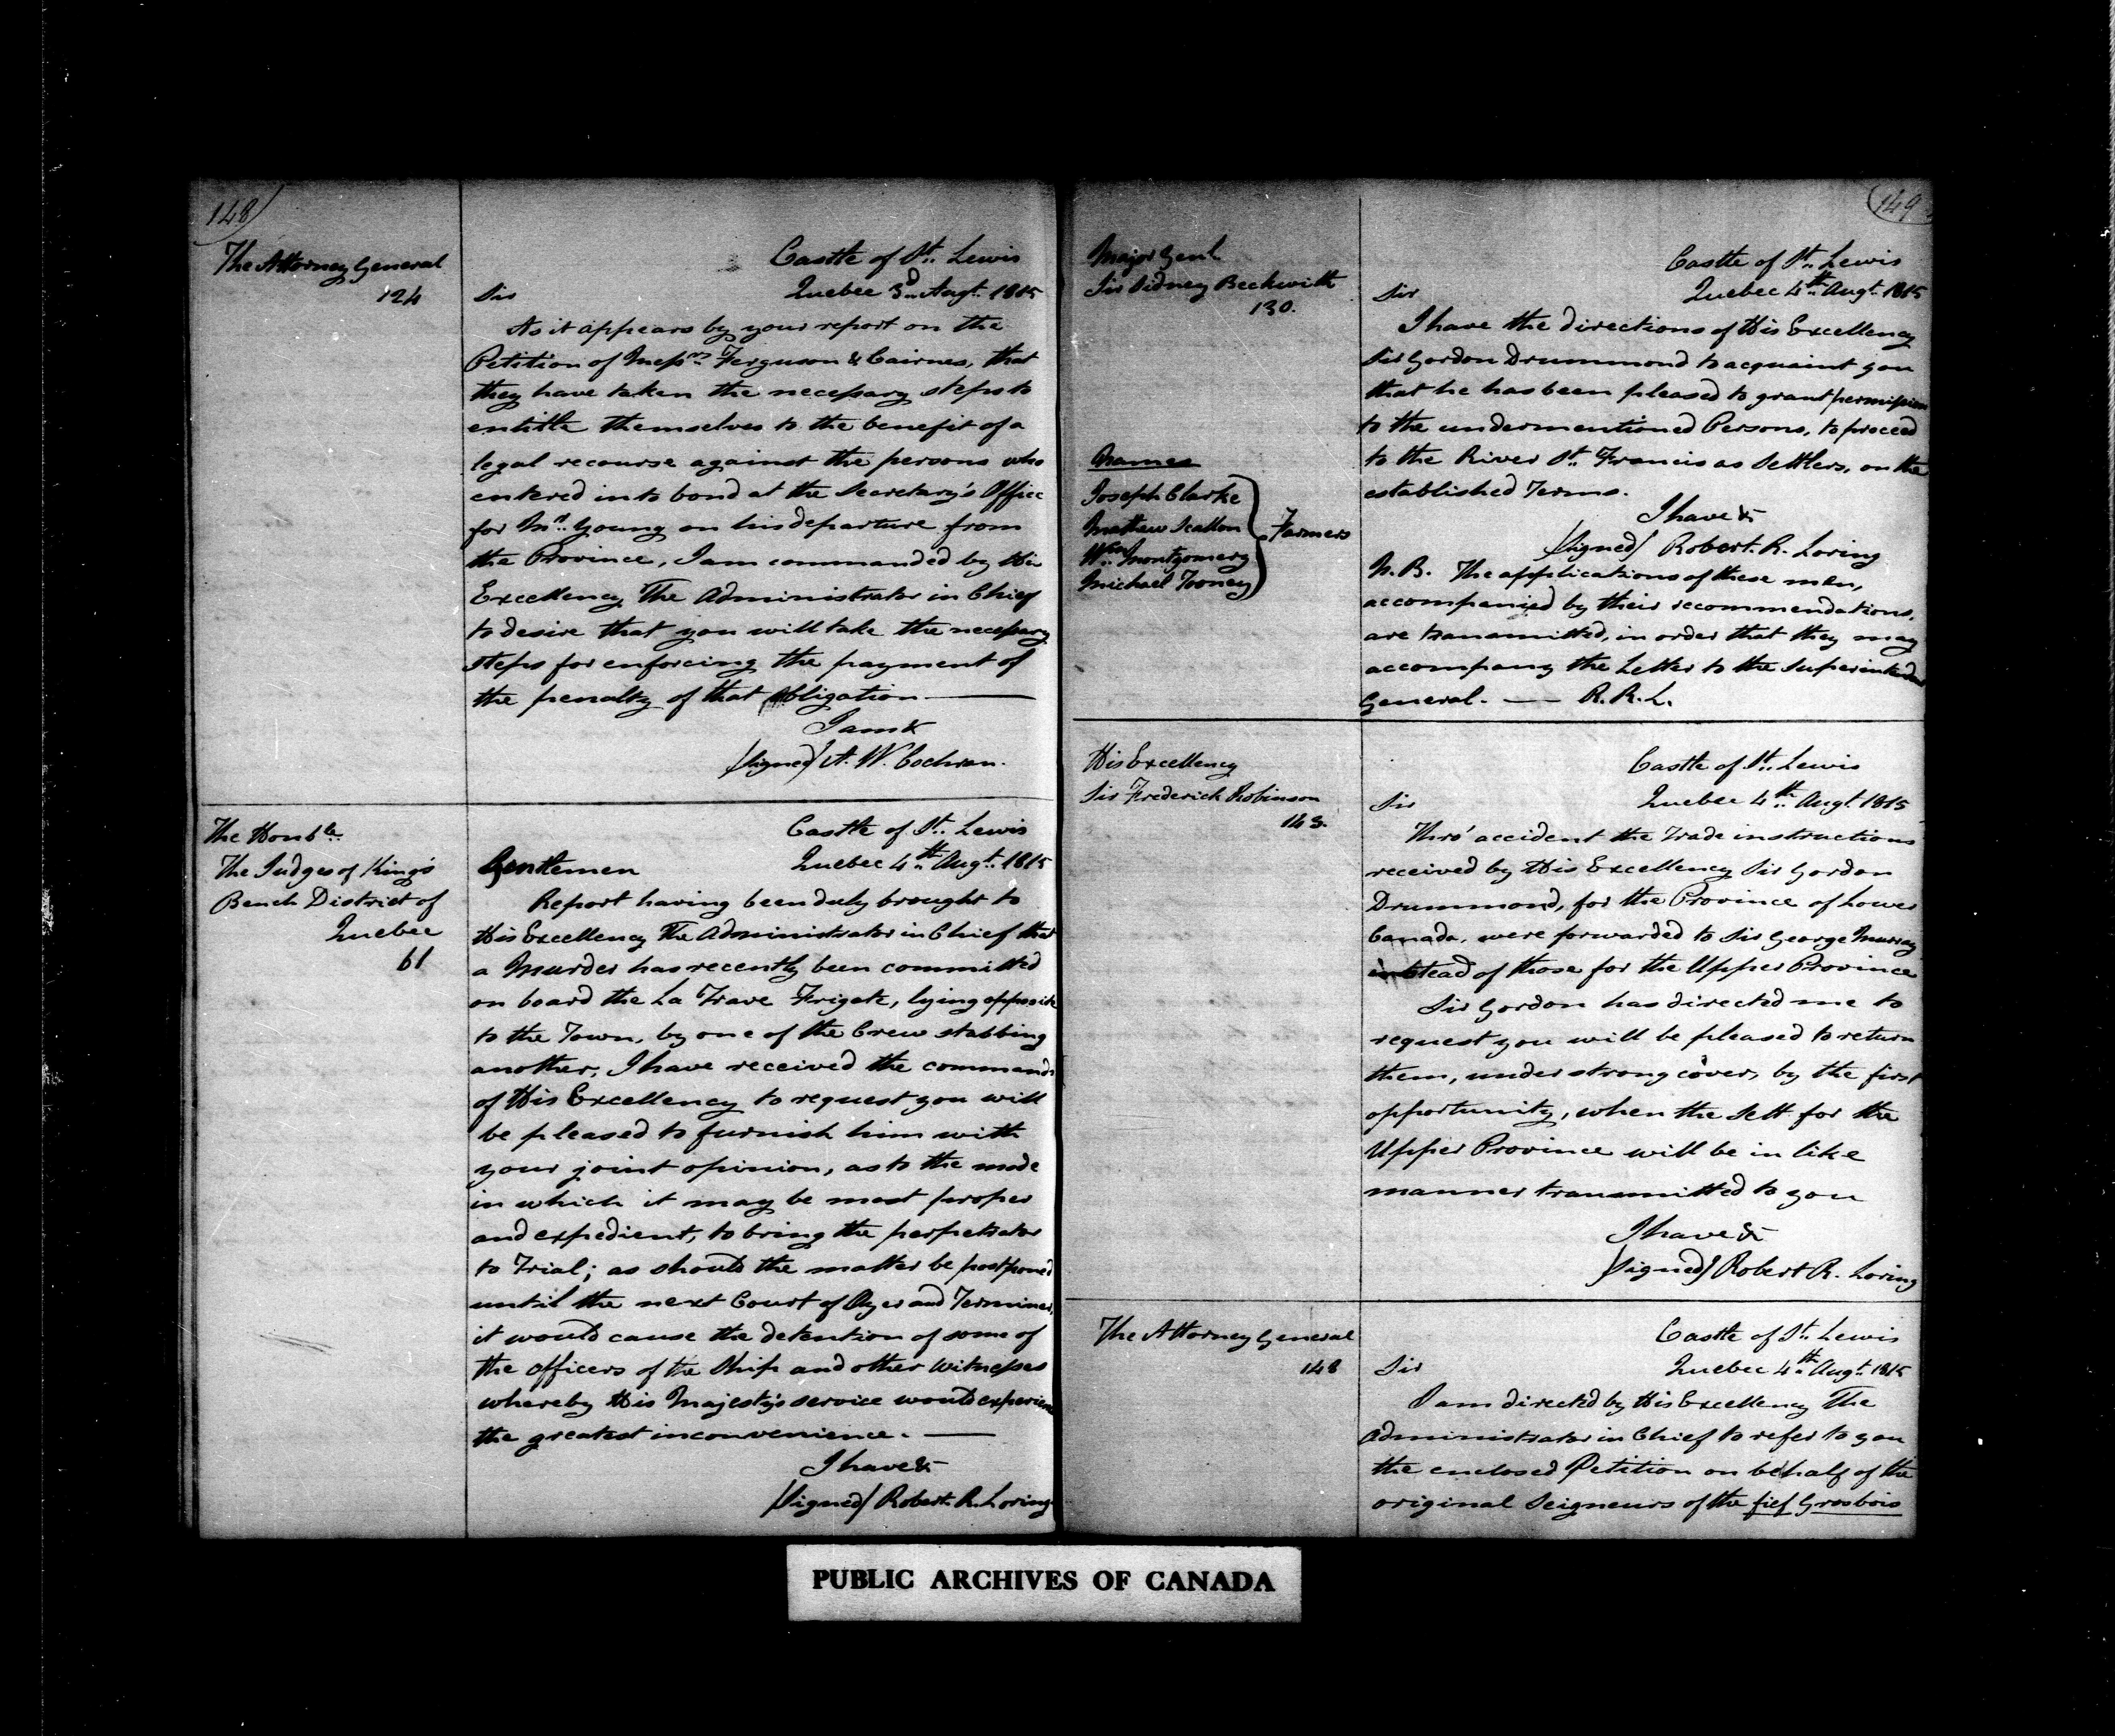 148
The Attorney General
124
Castle of St. Lewis
Quebec 3d Augt. 1815
Sir
As it appears by your report on the
Petition of Messrs Ferguson & Cairnes, that
they have taken the necessary steps to
entitle themselves to the benefit of a
legal recourse against the persons who
entered into bond at the Secretary's Office
for Mr. Young on his departure from
the Province, I am commanded by His
Excellency The Administrator in Chief
to desire that you will take the necessary
steps for enforcing the payment of
the penalty of that obligation.
I am &
(Signed) A. W. Cochran.
The Honble.
The Judges of King's
Bench District of
Quebec
61
Castle of St. Lewis
Quebec 4th Augt. 1815
Gentlemen
Report having been duly brought to
His Excellency The Administrator in Chief that
a Murder has recently been committed
on board the La Trave Frigate, lying opposite
to the Town, by one of the Crew stabbing
another, I have received the commands
of His Excellency to request you will
be pleased to furnish him with
your joint opinion, as to the mode
in which it may be most proper
and expedient, to bring the perpetrator
to Trial; as should the matter be postponed
until the next Court of Oyer and Terminer,
it would cause the detention of some of
the officers of the Ship and other Witnesses
whereby His Majesty's service would experience
the greatest inconvenience.
I have &
(Signed) Robert R. Loring
149
Major Genl
Sir Sidney Beckwith
130.
Castle of St. Lewis
Quebec 4th Augt. 1815
Sir
I have the directions of His Excellency
Sir Gordon Drummond to acquaint you
that he has been pleased to grant permission
to the undermentioned Persons, to proceed
to the River St. Francis as Settlers, on the
established Terms.
Names
Joseph Clarke
Mathew Scallon
Wm. Montgomery
Michael Tooney
Farmers
I have &
(Signed) Robert. R. Loring
N.B. The applications of these men,
accompanied by their recommendations,
are transmitted, in order that they may
accompany the Letter to the Superintendt
General. — R. R. L.
His Excellency
Sir Frederick Robinson
143.
Castle of St. Lewis
Quebec 4th Augt. 1815
Sir
Thro' accident the Trade instructions
received by His Excellency Sir Gordon
Drummond, for the Province of Lower
Canada, were forwarded to Sir George Murray
instead of those for the Upper Province
Sir Gordon has directed me to
request you will be pleased to return
them, under strong cover, by the first
opportunity, when the Sett for the
Upper Province will be in like
manner transmitted to you
I have &
(Signed) Robert R. Loring
The Attorney General
148
Castle of St. Lewis
Quebec 4th Augt. 1815
Sir
I am directed by His Excellency The
Administrator in Chief to refer to you
the enclosed Petition on behalf of the
original Seigneurs of the fief Grosbois
PUBLIC ARCHIVES OF CANADA